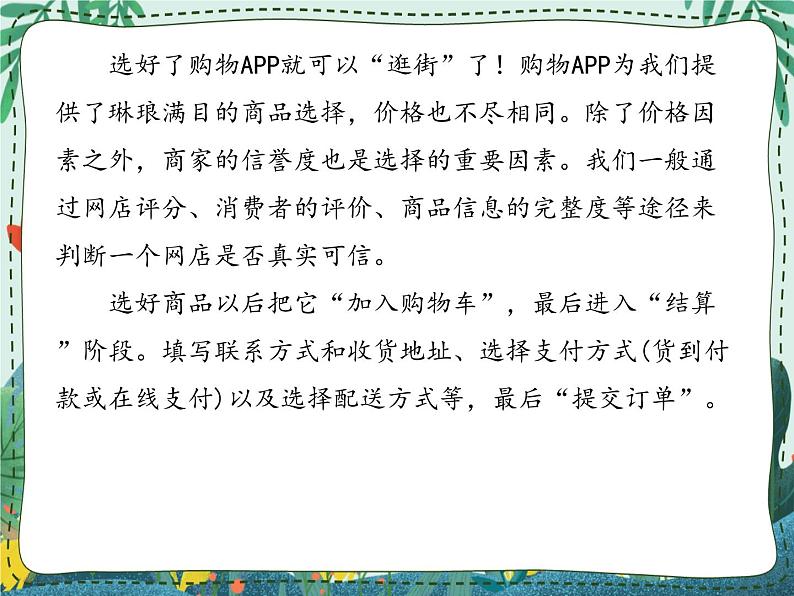 选好了购物APP就可以“逛街”了！购物APP为我们提
供了琳琅满目的商品选择，价格也不尽相同。除了价格因
素之外，商家的信誉度也是选择的重要因素。我们一般通
过网店评分、消费者的评价、商品信息的完整度等途径来
判断一个网店是否真实可信。
选好商品以后把它“加入购物车”，最后进入“结算
”阶段。填写联系方式和收货地址、选择支付方式(货到付
款或在线支付)以及选择配送方式等，最后“提交订单”。